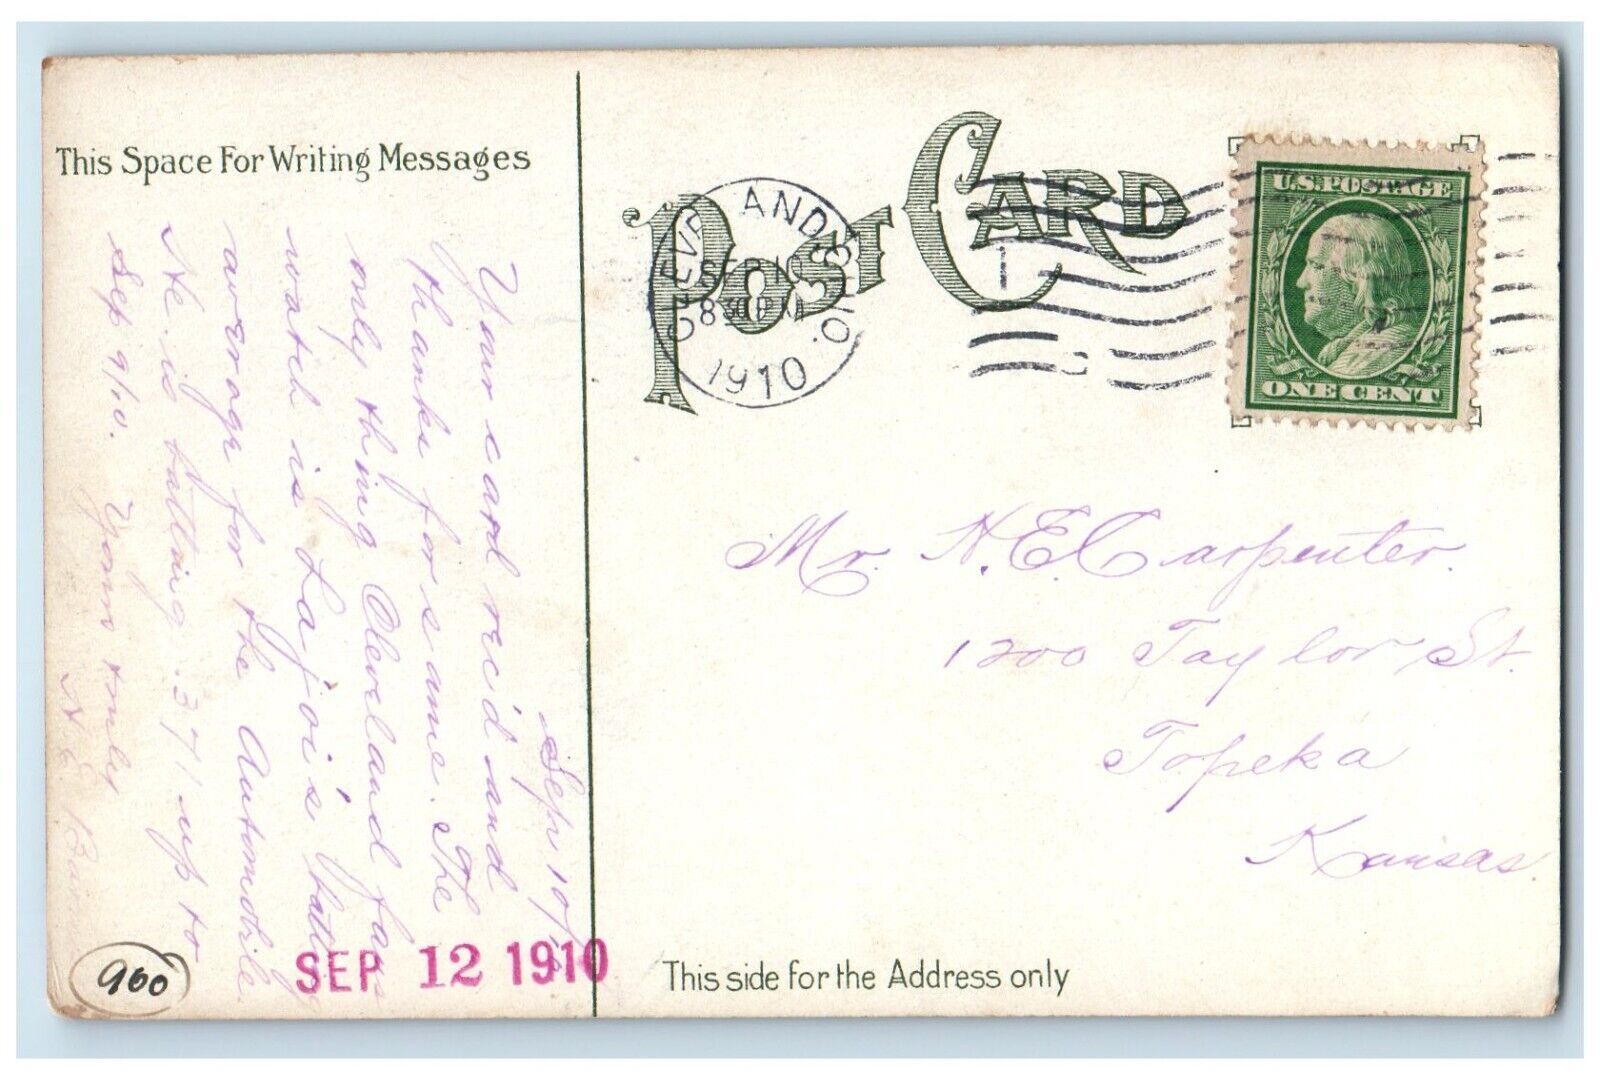 This Space For Writing Messages
Sep 10/10
Your card rec'd and
thanks for same. The
only thing Cleveland fans
watch is Lajoie's batting
average for the Automobile.
He is batting .371 up to
Sep 9/10. Yours truly
N E
POST CARD
CLEVELAND, OHIO.
SEP 10
8 30 PM
1910
U.S. POSTAGE
ONE CENT
Mr. N. E. Carpenter.
1200 Taylor St.
Topeka
Kansas.
900
SEP 12 1910
This side for the Address only